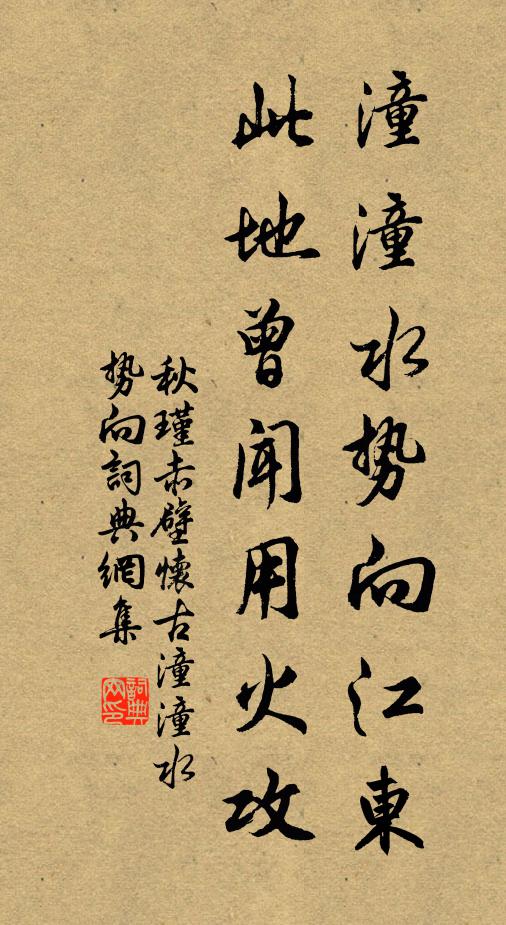 潼潼水势向江東
此地曾闻用火攻
秋瑾赤壁懷古潼潼水
势向詞典網集
詞典网印